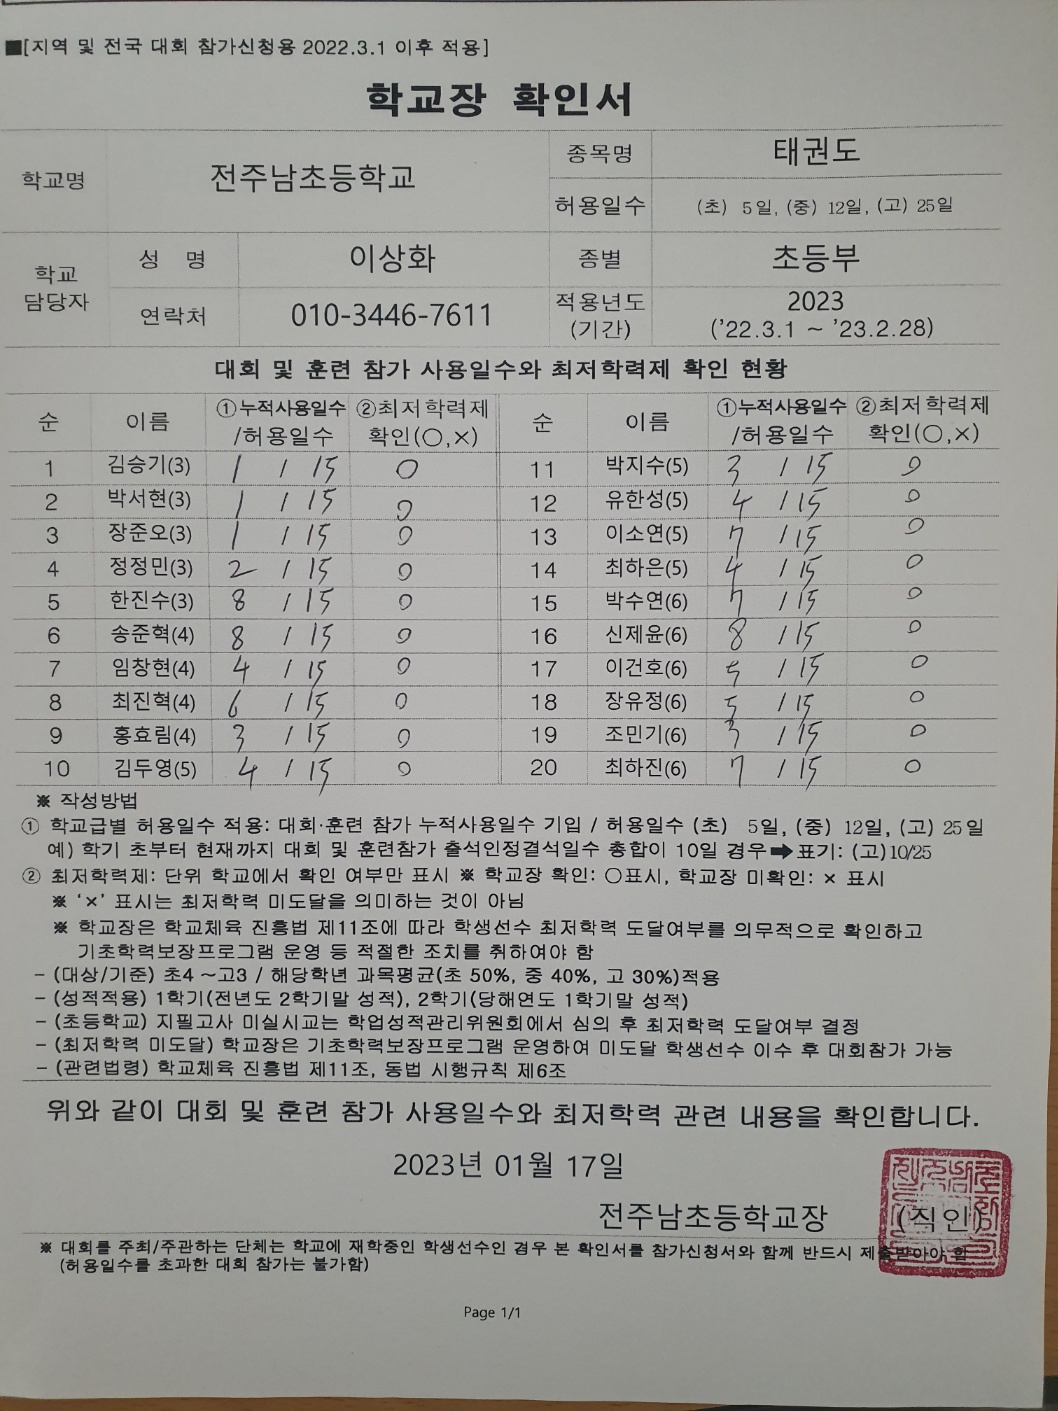 ■[지역 및 전국 대회 참가신청용 2022.3.1 이후 적용]
학교장 확인서
학교명 전주남초등학교 종목명 태권도
허용일수 (초) 5일, (중) 12일, (고) 25일
학교 담당자 성 명 이상화 종별 초등부
연락처 010-3446-7611 적용년도 (기간) 2023 ('22.3.1 ~ '23.2.28)
대회 및 훈련 참가 사용일수와 최저학력제 확인 현황
순 이름 ①누적사용일수/허용일수 ②최저학력제 확인(○,×) 순 이름 ①누적사용일수/허용일수 ②최저학력제 확인(○,×)
1 김승기(3) 1 / 15 ○ 11 박지수(5) 3 / 15 ○
2 박서현(3) 1 / 15 ○ 12 유한성(5) 4 / 15 ○
3 장준오(3) 1 / 15 ○ 13 이소연(5) 7 / 15 ○
4 정정민(3) 2 / 15 ○ 14 최하은(5) 4 / 15 ○
5 한진수(3) 8 / 15 ○ 15 박수연(6) 7 / 15 ○
6 송준혁(4) 8 / 15 ○ 16 신제윤(6) 8 / 15 ○
7 임창현(4) 4 / 15 ○ 17 이건호(6) / 15 ○
8 최진혁(4) 6 / 15 ○ 18 장유정(6) 5 / 15 ○
9 홍효림(4) 3 / 15 ○ 19 조민기(6) 3 / 15 ○
10 김두영(5) 4 / 15 ○ 20 최하진(6) 7 / 15 ○
※ 작성방법
① 학교급별 허용일수 적용: 대회·훈련 참가 누적사용일수 기입 / 허용일수 (초) 5일, (중) 12일, (고) 25일
예) 학기 초부터 현재까지 대회 및 훈련참가 출석인정결석일수 총합이 10일 경우➡표기: (고)10/25
② 최저학력제: 단위 학교에서 확인 여부만 표시 ※ 학교장 확인: ○표시, 학교장 미확인: × 표시
※ '×' 표시는 최저학력 미도달을 의미하는 것이 아님
※ 학교장은 학교체육 진흥법 제11조에 따라 학생선수 최저학력 도달여부를 의무적으로 확인하고
기초학력보장프로그램 운영 등 적절한 조치를 취하여야 함
- (대상/기준) 초4 ~고3 / 해당학년 과목평균(초 50%, 중 40%, 고 30%)적용
- (성적적용) 1학기(전년도 2학기말 성적), 2학기(당해연도 1학기말 성적)
- (초등학교) 지필고사 미실시교는 학업성적관리위원회에서 심의 후 최저학력 도달여부 결정
- (최저학력 미도달) 학교장은 기초학력보장프로그램 운영하여 미도달 학생선수 이수 후 대회참가 가능
- (관련법령) 학교체육 진흥법 제11조, 동법 시행규칙 제6조
위와 같이 대회 및 훈련 참가 사용일수와 최저학력 관련 내용을 확인합니다.
2023년 01월 17일
전주남초등학교장 (직인)
※ 대회를 주최/주관하는 단체는 학교에 재학중인 학생선수인 경우 본 확인서를 참가신청서와 함께 반드시 제출받아야 함
(허용일수를 초과한 대회 참가는 불가함)
Page 1/1